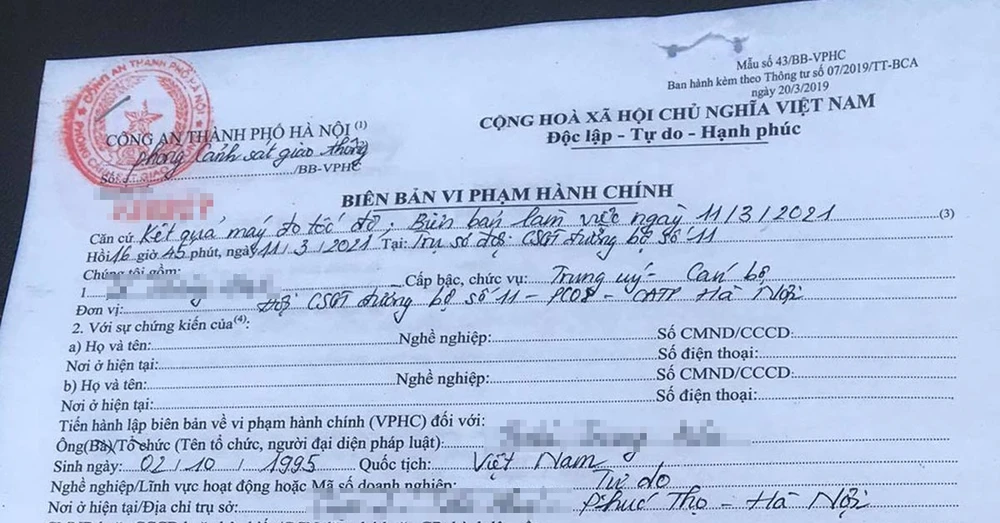 Mẫu số 43/BB-VPHC
Ban hành kèm theo Thông tư số 07/2019/TT-BCA
ngày 20/3/2019
CÔNG AN THÀNH PHỐ HÀ NỘI
CÔNG AN THÀNH PHỐ HÀ NỘI (1)
Phòng Cảnh sát giao thông
Số: /BB-VPHC
CỘNG HOÀ XÃ HỘI CHỦ NGHĨA VIỆT NAM
Độc lập - Tự do - Hạnh phúc
BIÊN BẢN VI PHẠM HÀNH CHÍNH
Căn cứ Kết quả máy đo tốc độ; Biên bản làm việc ngày 11/3/2021 (3)
Hồi 16 giờ 45 phút, ngày 11/3/2021 Tại: Trụ sở đội CSGT đường bộ số 11
Chúng tôi gồm:
1. Cấp bậc, chức vụ: Trung uý - Cán bộ
Đơn vị: Đội CSGT đường bộ số 11 - PC08 - CATP Hà Nội
2. Với sự chứng kiến của(4):
a) Họ và tên: Nghề nghiệp: Số CMND/CCCD:
Nơi ở hiện tại: Số điện thoại:
b) Họ và tên: Nghề nghiệp: Số CMND/CCCD:
Nơi ở hiện tại: Số điện thoại:
Tiến hành lập biên bản về vi phạm hành chính (VPHC) đối với:
Ông(Bà)/Tổ chức (Tên tổ chức, người đại diện pháp luật):
Sinh ngày: 02/10/1995 Quốc tịch: Việt Nam
Nghề nghiệp/Lĩnh vực hoạt động hoặc Mã số doanh nghiệp: Tự do
Nơi ở hiện tại/Địa chỉ trụ sở: Phúc Thọ - Hà Nội